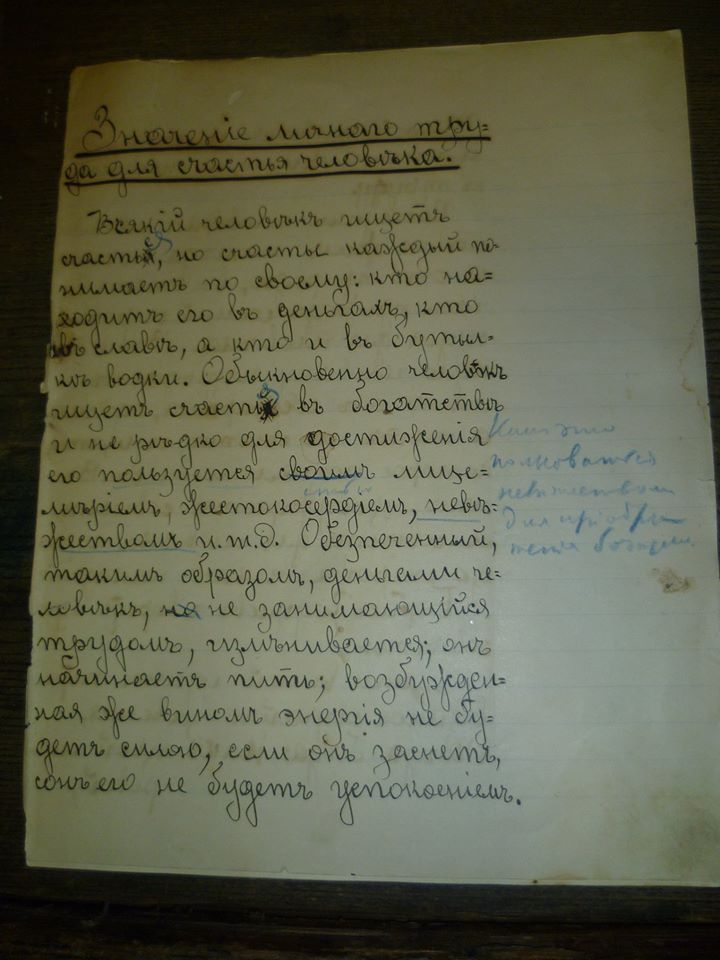 Значеніе личнаго тру=
да для счастья человѣка.
Всякій человѣкъ ищетъ
счастья, но счастье каждый по-
нимаетъ по своему: кто на=
ходитъ его въ деньгахъ, кто
въ славѣ, а кто и въ бутыл=
кѣ водки. Обыкновенно человѣкъ
ищетъ счастія въ богатствѣ
и не рѣдко для достиженія
его пользуется своимъ лице=
мѣріемъ, жестокосердіемъ, невѣ=
жествомъ и.т.д. Обезпеченный,
такимъ образомъ, деньгами че=
ловѣкъ, но не занимающійся
трудомъ, измѣнивается; онъ
начинаетъ пить; возбужден=
ная же виномъ энергія не бу=
детъ силою, если онъ заснетъ,
сонъ его не будетъ успокоеніемъ.
невѣжествомъ
для пріобрѣ
тенія